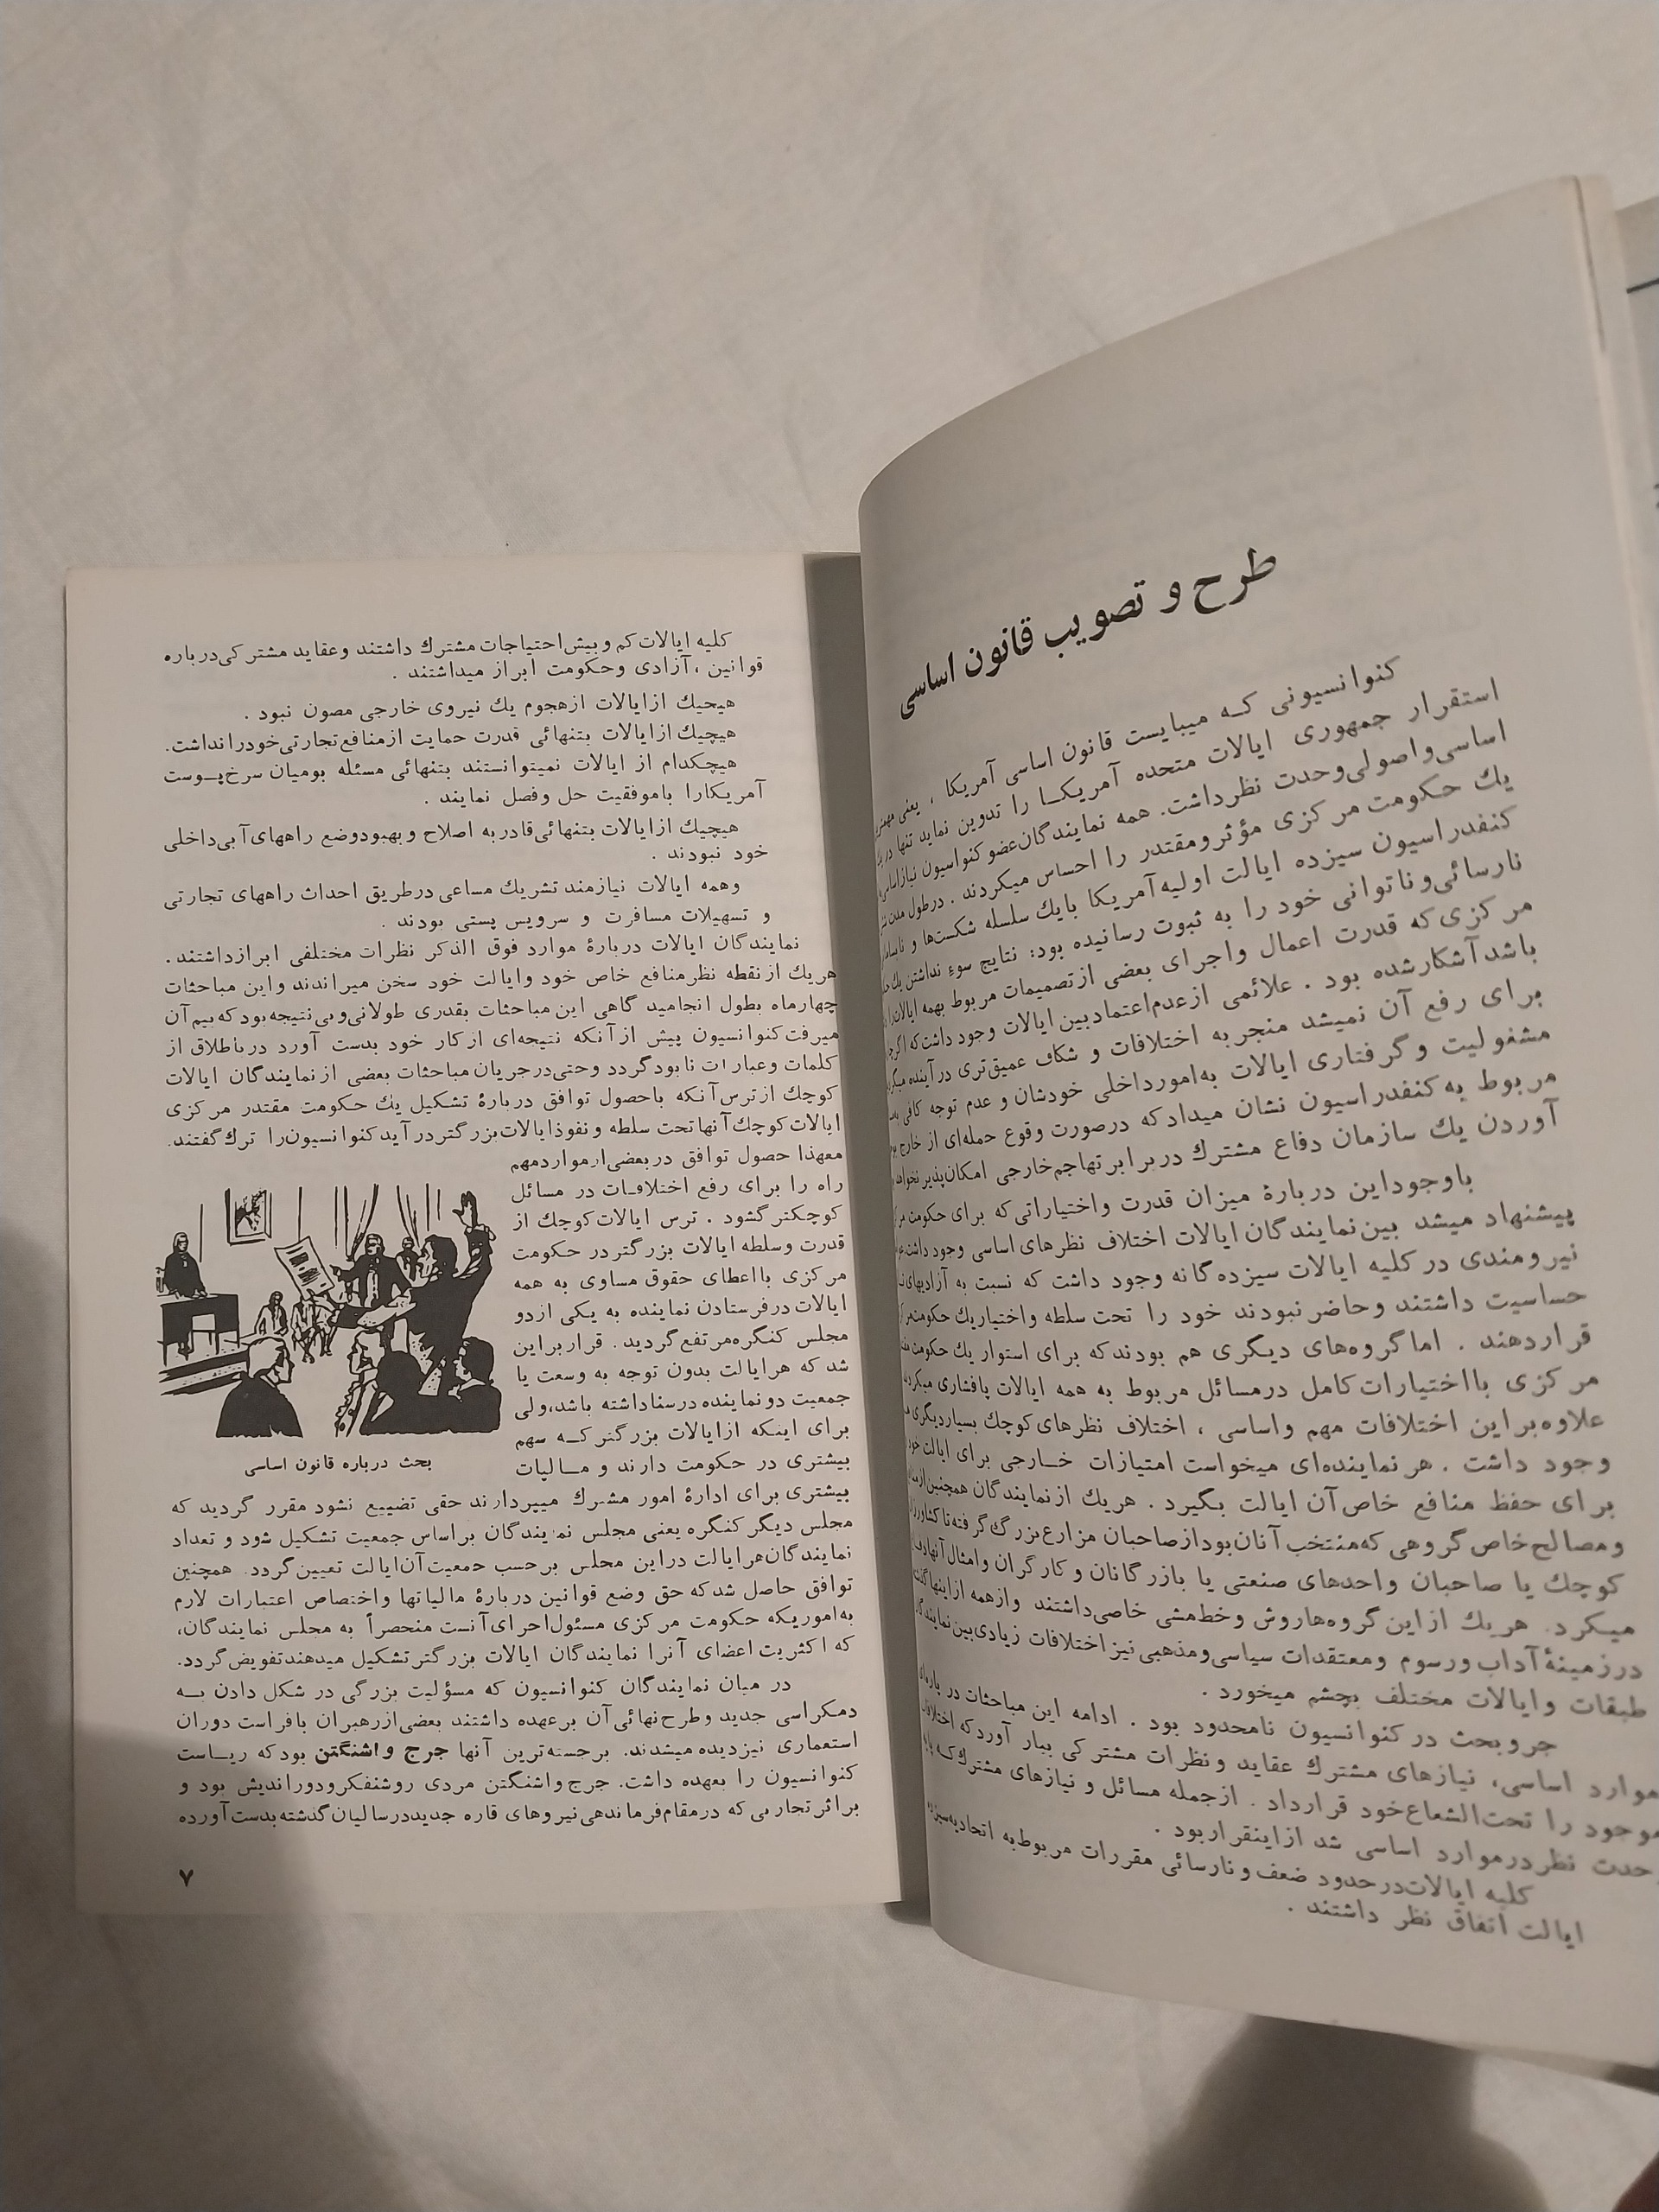 طرح و تصویب قانون اساسی
کنوانسیونی که میبایست قانون اساسی آمریکا ، یعنی
استقرار جمهوری ایالات متحده آمریکا را تدوین نماید تنها در
اساسی و اصولی وحدت نظر داشت. همه نمایندگان عضو کنوانسیون
یك حکومت مرکزی مؤثر و مقتدر را احساس میکردند . درطول مدت
کنفدراسیون سیزده ایالت اولیه آمریکا بایك سلسله شکست‌ها و
نارسائی و ناتوانی خود را به ثبوت رسانیده بود: نتایج سوء نداشتن یك
مرکزی که قدرت اعمال و اجرای بعضی از تصمیمات مربوط بهمه ایالات را
باشد آشکار شده بود . علائمی از عدم اعتماد بین ایالات وجود داشت که اگر
برای رفع آن نمیشد منجر به اختلافات و شکاف عمیق‌تری در آینده
مشغولیت و گرفتاری ایالات به امور داخلی خودشان و عدم توجه کافی
مربوط به کنفدراسیون نشان میداد که درصورت وقوع حمله‌ای از خارج
آوردن یك سازمان دفاع مشترك در برابر تهاجم خارجی امکان‌پذیر
باوجود این دربارهٔ میزان قدرت و اختیاراتی که برای حکومت
پیشنهاد میشد بین نمایندگان ایالات اختلاف نظرهای اساسی وجود داشت
نیرومندی در کلیه ایالات سیزده گانه وجود داشت که نسبت به آزادیهای
حساسیت داشتند و حاضر نبودند خود را تحت سلطه و اختیار یك حکومت
قرار دهند . اما گروه‌های دیگری هم بودند که برای استوار یك حکومت
مرکزی با اختیارات کامل درمسائل مربوط به همه ایالات پافشاری میکردند
علاوه بر این اختلافات مهم و اساسی ، اختلاف نظرهای کوچك بسیار دیگری
وجود داشت . هر نماینده‌ای میخواست امتیازات خـارجی برای ایالت
برای حفظ منافع خاص آن ایالت بگیرد . هریك از نمایندگان همچنین
و مصالح خاص گروهی که منتخب آنان بود از صاحبان مزارع بزرگ گرفته تا
کوچك یا صاحبان واحدهای صنعتی یا بازرگانان و کارگران و امثال آنها
میکرد. هریك از این گروه‌ها روش و خط‌مشی خاصی داشتند و از همه اینها
در زمینهٔ آداب و رسوم و معتقدات سیاسی و مذهبی نیز اختلافات زیادی بین
طبقات و ایالات مختلف بچشم میخورد .
جروبحث در کنوانسیون نامحدود بود . ادامه این مباحثات در
موارد اساسی، نیازهای مشترك عقاید و نظرات مشترکی ببار آورد که
موجود را تحت‌الشعاع خود قرارداد . از جمله مسائل و نیازهای مشترك که
وحدت نظر در موارد اساسی شد از اینقرار بود .
کلیه ایالات در حدود ضعف و نارسائی مقررات مربوط به اتحادیه سیزده
ایالت اتفاق نظر داشتند .
کلیه ایالات کم و بیش احتیاجات مشترك داشتند و عقاید مشترکی درباره
قوانین ، آزادی و حکومت ابراز میداشتند .
هیچیك از ایالات از هجوم یك نیروی خارجی مصون نبود .
هیچیك از ایالات بتنهائی قدرت حمایت از منافع تجارتی خود را نداشت.
هیچکدام از ایالات نمیتوانستند بتنهائی مسئله بومیان سرخ‌پـوست
آمریکا را باموفقیت حل و فصل نمایند .
هیچیك از ایالات بتنهائی قادر به اصلاح و بهبود وضع راههای آبی داخلی
خود نبودند .
و همه ایالات نیازمند تشریك مساعی در طریق احداث راههای تجارتی
و تسهیلات مسافرت و سرویس پستی بودند .
نمایندگان ایالات دربارهٔ موارد فوق الذکر نظرات مختلفی ابراز داشتند .
هریك از نقطه نظر منافع خاص خود و ایالت خود سخن میراندند و این مباحثات
چهارماه بطول انجامید گاهی این مباحثات بقدری طولانی و بی نتیجه بود که بیم آن
میرفت کنوانسیون پیش از آنکه نتیجه‌ای از کار خود بدست آورد در باطلاق از
کلمات و عبارات نابود گردد و حتی در جریان مباحثات بعضی از نمایندگان ایالات
کوچك از ترس آنکه باحصول توافق دربارهٔ تشکیل یك حکومت مقتدر مرکزی
ایالات کوچك آنها تحت سلطه و نفوذ ایالات بزرگتر در آید کنوانسیون را ترك گفتند.
معهذا حصول توافق در بعضی از موارد مهم
راه را برای رفع اختلافـات در مسائل
کوچکتر گشود . ترس ایالات کوچك از
قدرت و سلطه ایالات بزرگتر در حکومت
مرکزی با اعطای حقوق مساوی به همه
ایالات در فرستادن نماینده به یکی از دو
مجلس کنگره مرتفع گردید . قرار بر این
شد که هر ایالت بدون توجه به وسعت یا
جمعیت دو نماینده در سنا داشته باشد، ولی
برای اینکه از ایالات بزرگتر کـه سهم
بیشتری در حکومت دارند و مـالیات
بحث درباره قانون اساسی
بیشتری برای ادارهٔ امور مشترك میپردازند حقی تضییع نشود مقرر گردید که
مجلس دیگر کنگره یعنی مجلس نمایندگان براساس جمعیت تشکیل شود و تعداد
نمایندگان هر ایالت در این مجلس برحسب جمعیت آن ایالت تعیین گردد. همچنین
توافق حاصل شد که حق وضع قوانین دربارهٔ مالیاتها و اختصاص اعتبارات لازم
به اموریکه حکومت مرکزی مسئول اجرای آنست منحصراً به مجلس نمایندگان،
که اکثریت اعضای آنرا نمایندگان ایالات بزرگتر تشکیل میدهند تفویض گردد.
در میان نمایندگان کنوانسیون که مسؤلیت بزرگی در شکل دادن بـه
دمکراسی جدید و طرح نهائی آن برعهده داشتند بعضی از رهبران بافراست دوران
استعماری نیز دیده میشدند. برجسته‌ترین آنها جرج واشنگتن بود که ریـاست
کنوانسیون را بعهده داشت. جرج واشنگتن مردی روشنفکر و دوراندیش بود و
براثر تجاربی که در مقام فرماندهی نیروهای قاره جدید در سالیان گذشته بدست آورده
۷